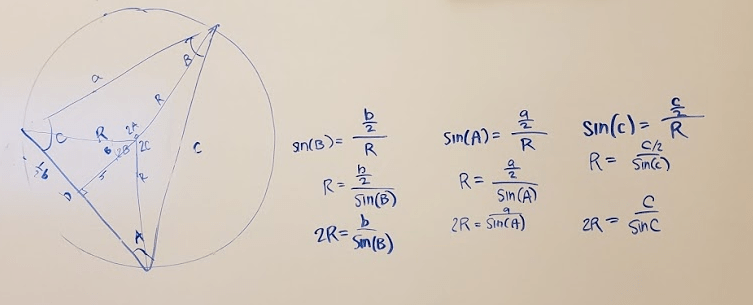 a
B
R
C
R
2A
B
2B
2C
R
c
½b
D
r
A
sn(B) = (b/2)/R
R = (b/2)/Sin(B)
2R = b/Sin(B)
Sin(A) = (a/2)/R
R = (a/2)/Sin(A)
2R = a/Sin(A)
Sin(c) = (c/2)/R
R = (c/2)/Sin(c)
2R = C/Sin C